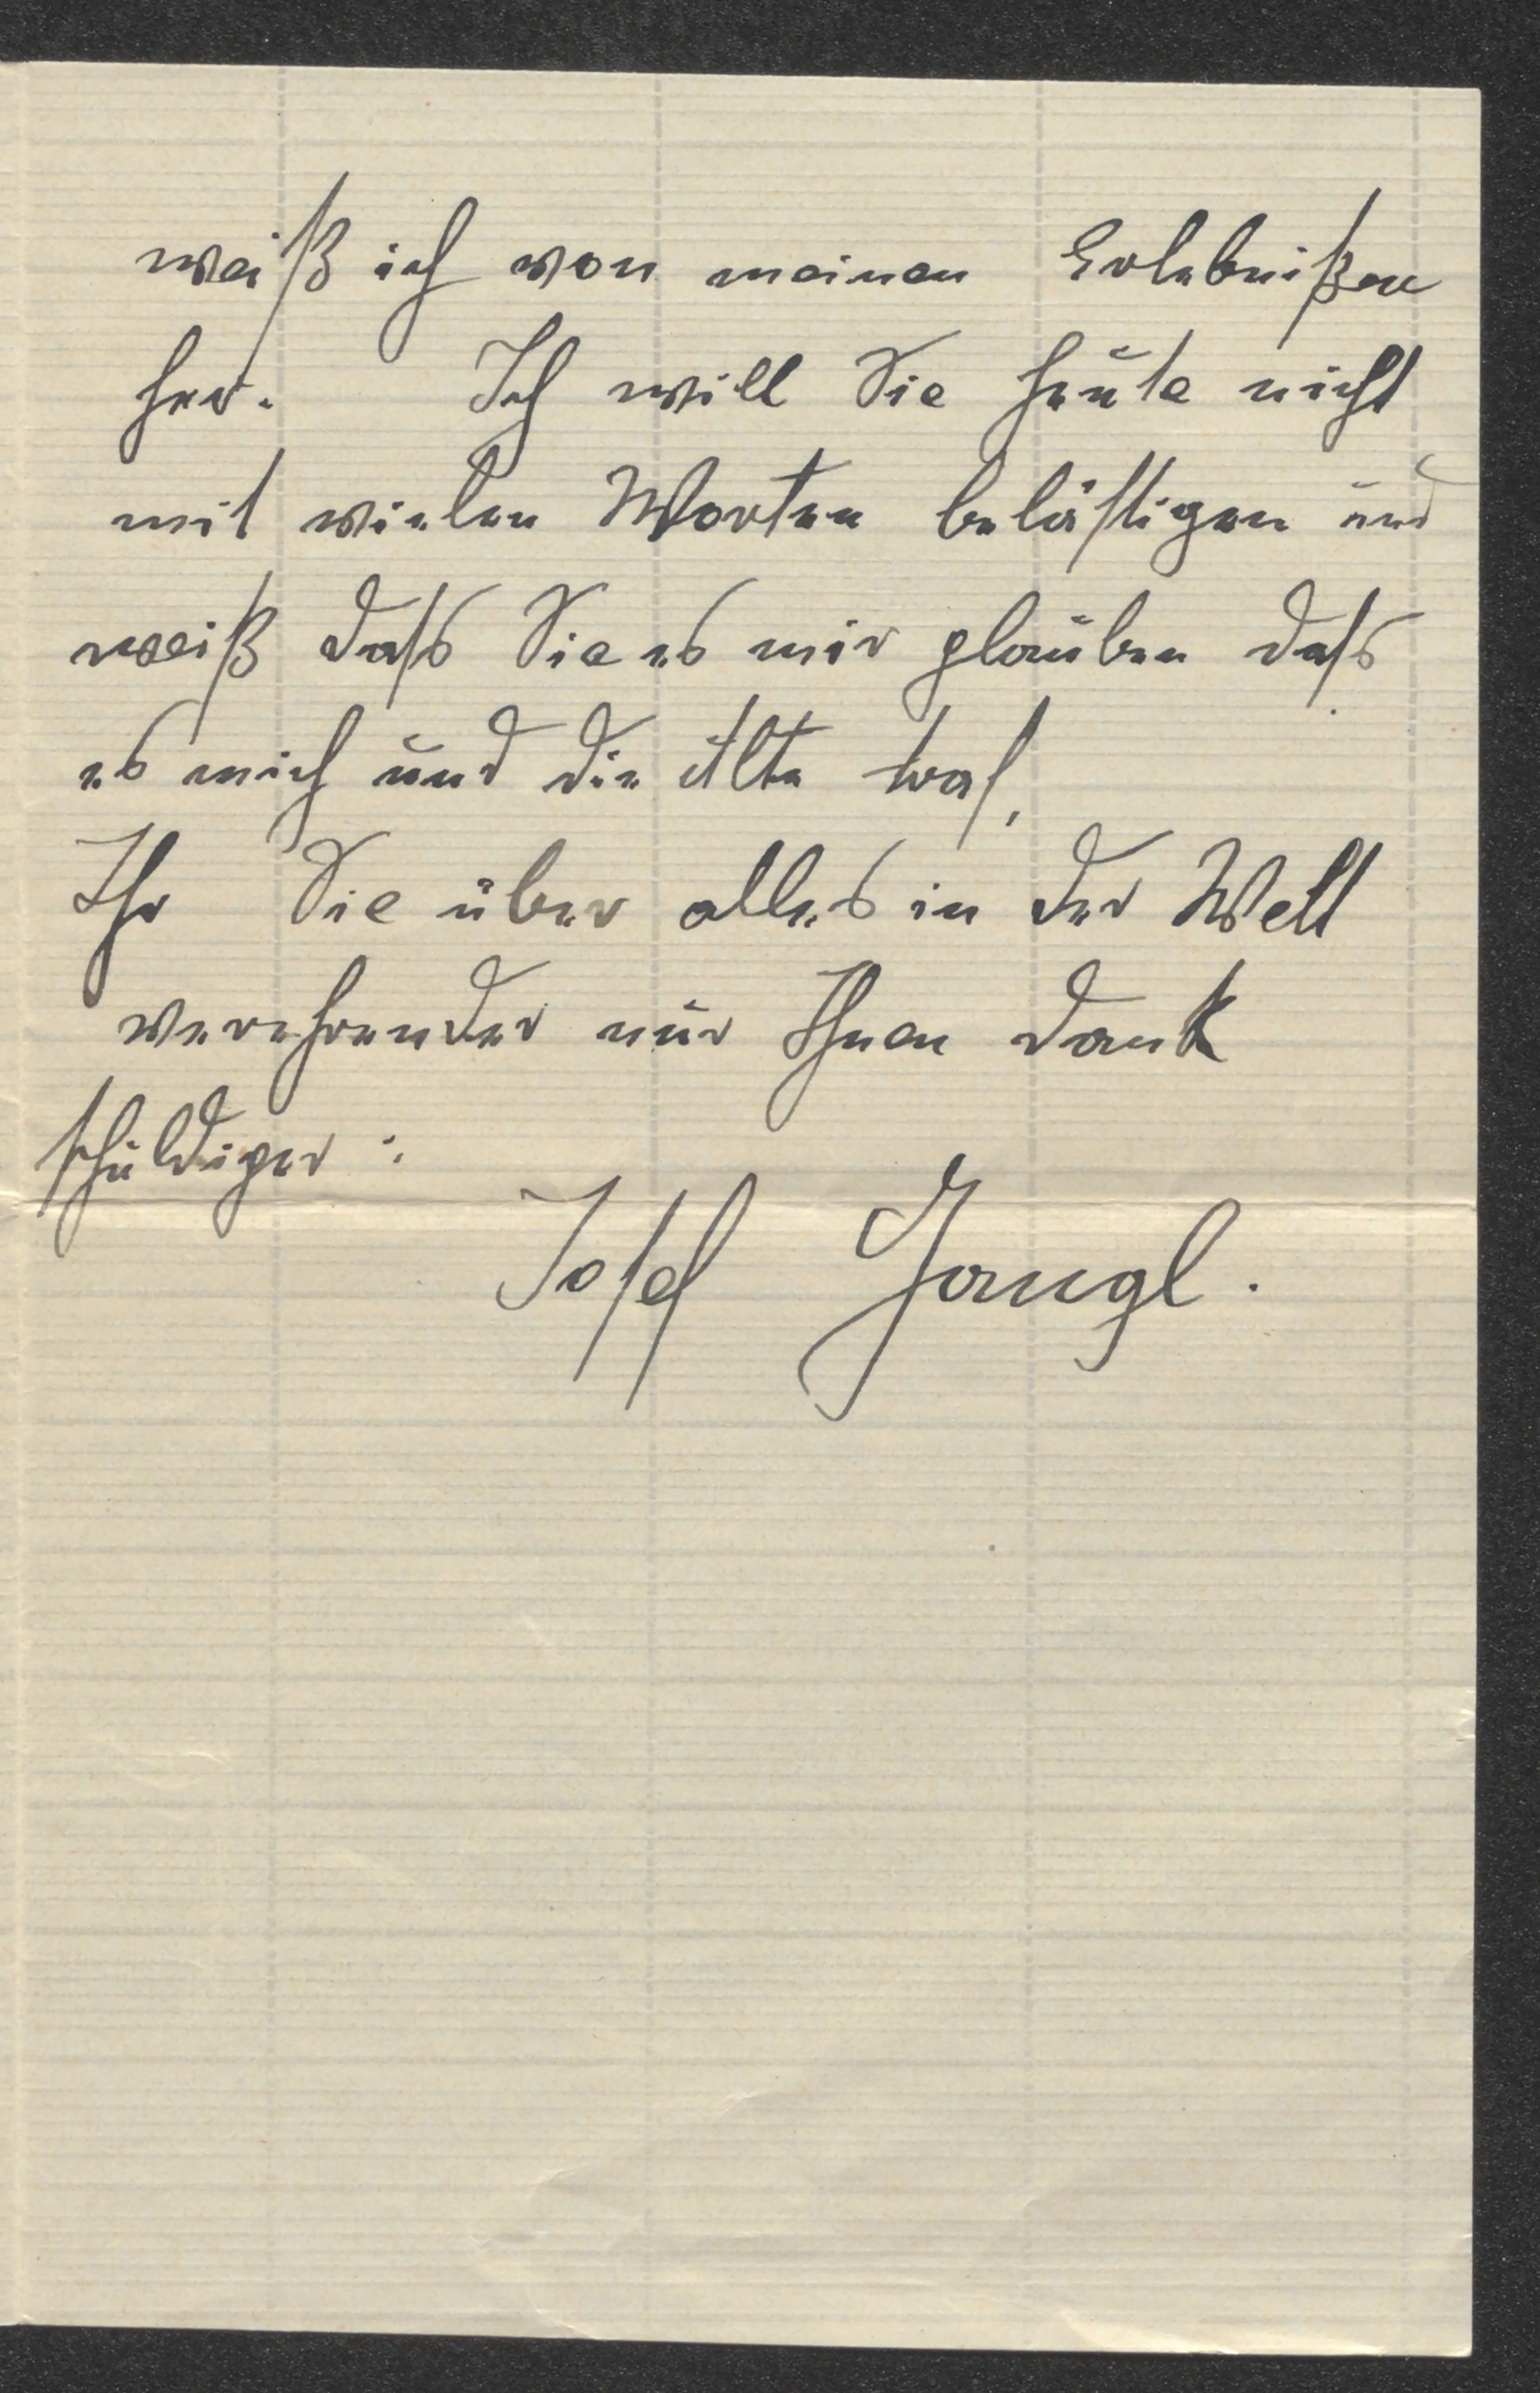 weiß ich von meinen Erlebnißen
her. Ich will Sie heute nicht
mit vielen Worten belästigen und
weiß dass Sie es mir glauben dass
es mich und die Alte traf.
Ihr Sie über alles in der Welt
verehrender nur Ihnen dank
schuldiger:
Josef